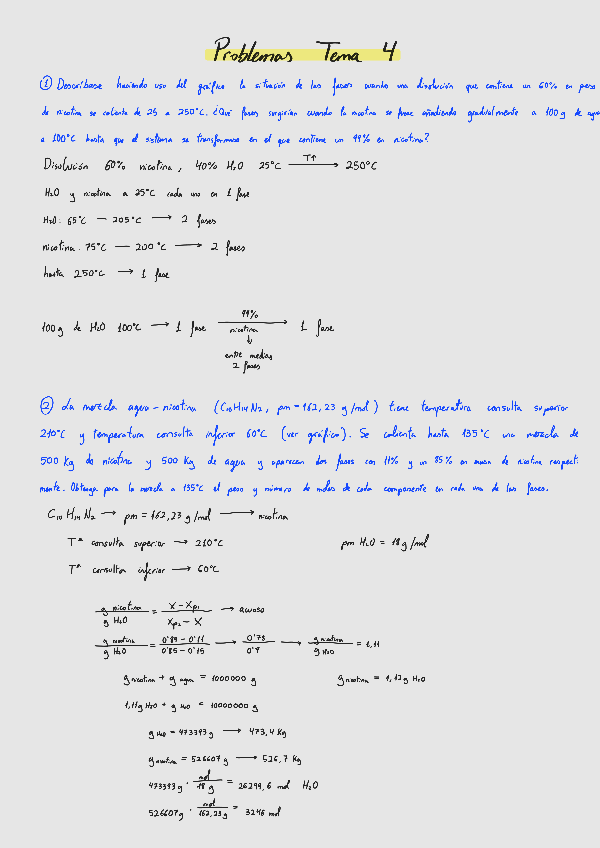 Problemas Tema 4
① Descríbase haciendo uso del gráfico la situación de las fases cuando una disolución que contiene un 60% en peso
de nicotina se calienta de 25 a 250°C. ¿Qué fases surgirían cuando la nicotina se fuese añadiendo gradualmente a 100 g de agua
a 100°C hasta que el sistema se transformase en el que contiene un 99% en nicotina?
Disolución 60% nicotina, 40% H₂O 25°C T↑ → 250°C
H₂O y nicotina a 25°C cada uno en 1 fase
H₂O: 65°C — 205°C → 2 fases
nicotina: 75°C — 200°C → 2 fases
hasta 250°C → 1 fase
100 g de H₂O 100°C → 1 fase 99% nicotina → 1 fase
↓
entre medias
2 fases
② La mezcla agua - nicotina (C₁₀H₁₄N₂, pm = 162,23 g/mol) tiene temperatura consulta superior
210°C y temperatura consulta inferior 60°C (ver gráfico). Se calienta hasta 135°C una mezcla de
500 Kg de nicotina y 500 Kg de agua y aparecen dos fases con 11% y un 85% en masa de nicotina respect.
mente. Obtenga para la mezcla a 135°C el peso y número de moles de cada componente en cada una de las fases.
C₁₀H₁₄N₂ → pm = 162,23 g/mol → nicotina
Tª consulta superior → 210°C pm H₂O = 18 g/mol
Tª consulta inferior → 60°C
g nicotina / g H₂O = X - Xp₁ / Xp₂ - X → acuoso
g nicotina / g H₂O = 0'89 - 0'11 / 0'85 - 0'15 → 0'78 / 0'7 → g nicotina / g H₂O = 1,11
g nicotina + g agua = 1000000 g g nicotina = 1,11 g H₂O
1,11 g H₂O + g H₂O = 10000000 g
g H₂O = 473393 g → 473,4 Kg
g nicotina = 526607 g → 526,7 Kg
473393 g · mol / 18 g = 26299,6 mol H₂O
526607 g · mol / 162,23 g = 3246 mol